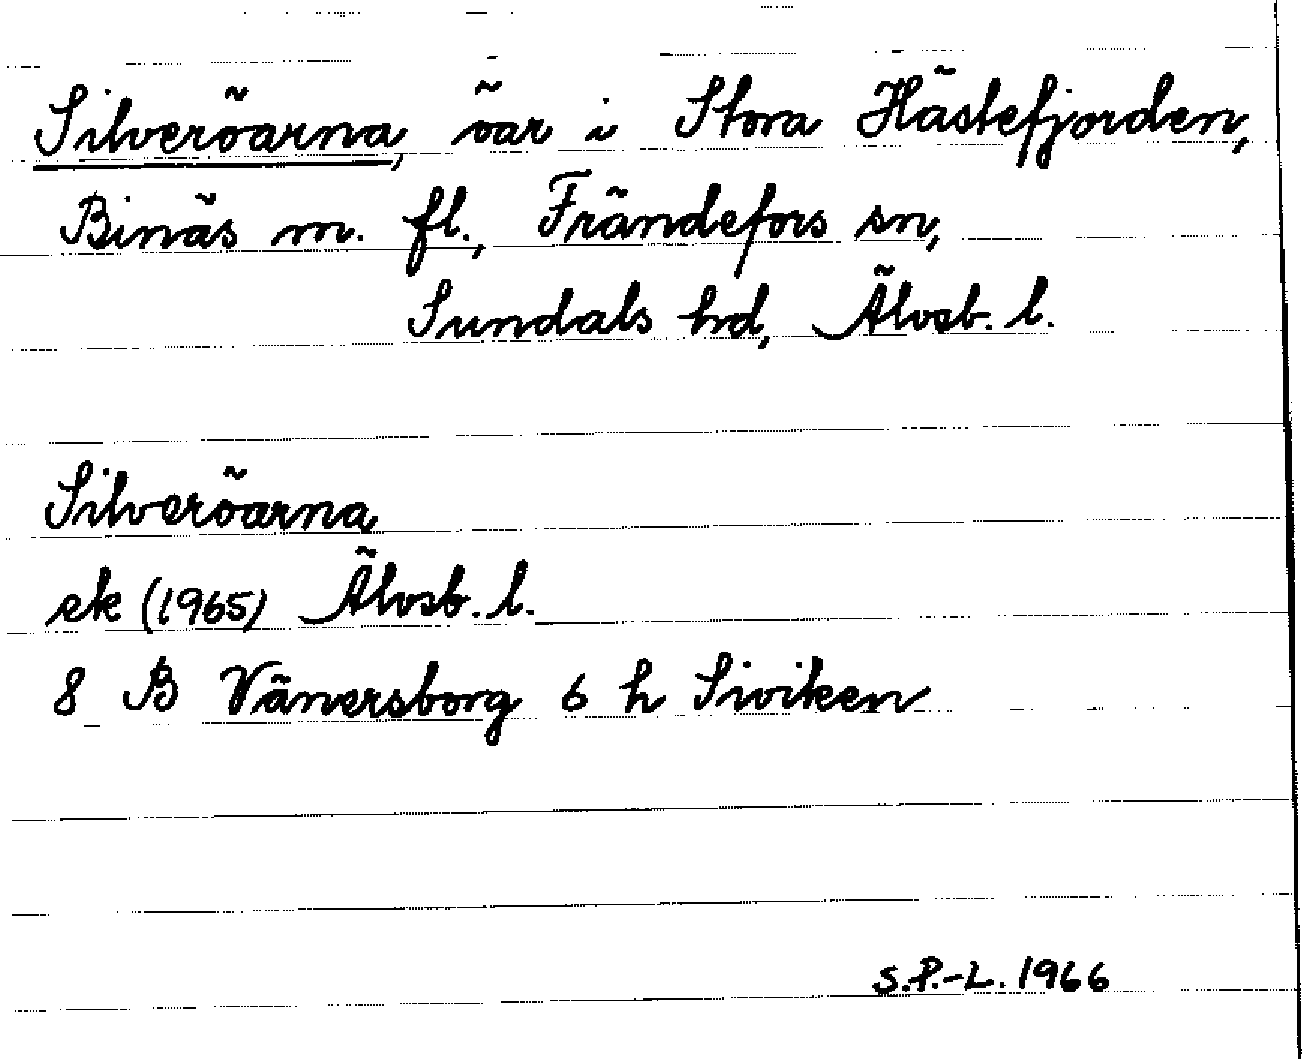 Silveröarna, öar i Stora Hästefjorden,
Binäs m. fl., Frändefors sn,
Sundals hd, Älvsb. l.
Silveröarna
ek (1965) Älvsb. l.
8 B Vänersborg 6 h Siviken
S.P.-L. 1966